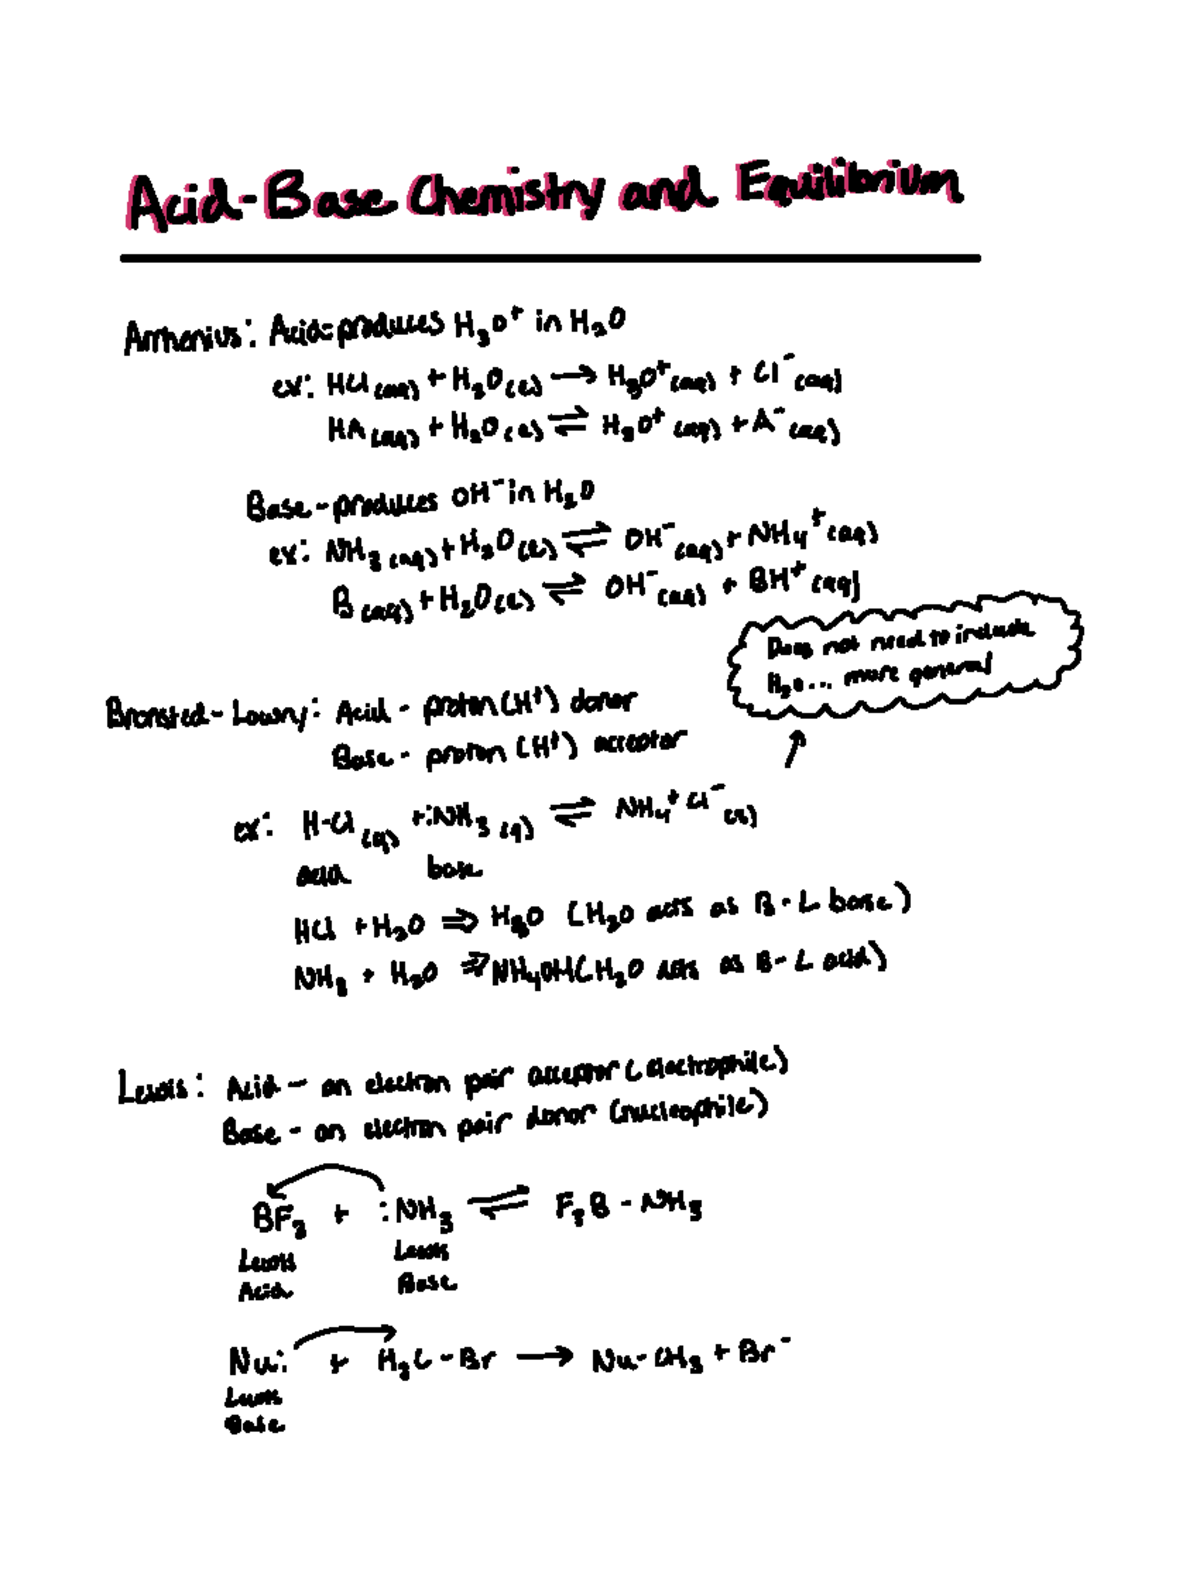 Acid-Base Chemistry and Equilibrium
Arrhenius: Acid=produces H₃O⁺ in H₂O
ex: HCl(aq) + H₂O(l) → H₃O⁺(aq) + Cl⁻(aq)
HA(aq) + H₂O(l) ⇌ H₃O⁺(aq) + A⁻(aq)
Base - produces OH⁻ in H₂O
ex: NH₃(aq) + H₂O(l) ⇌ OH⁻(aq) + NH₄⁺(aq)
B(aq) + H₂O(l) ⇌ OH⁻(aq) + BH⁺(aq)
Does not need to include
H₂O... more general
Bronsted-Lowry: Acid - proton (H⁺) donor
Base - proton (H⁺) acceptor
ex: H-Cl(g) + :NH₃(g) ⇌ NH₄⁺Cl⁻(s)
acid base
HCl + H₂O ⇒ H₃O (H₂O acts as B-L base)
NH₃ + H₂O ⇒ NH₄OH (H₂O acts as B-L acid)
Lewis: Acid - an electron pair acceptor (electrophile)
Base - an electron pair donor (nucleophile)
BF₃ + :NH₃ ⇌ F₃B - NH₃
Lewis Lewis
Acid Base
Nu: + H₃C - Br → Nu-CH₃ + Br⁻
Lewis
Base